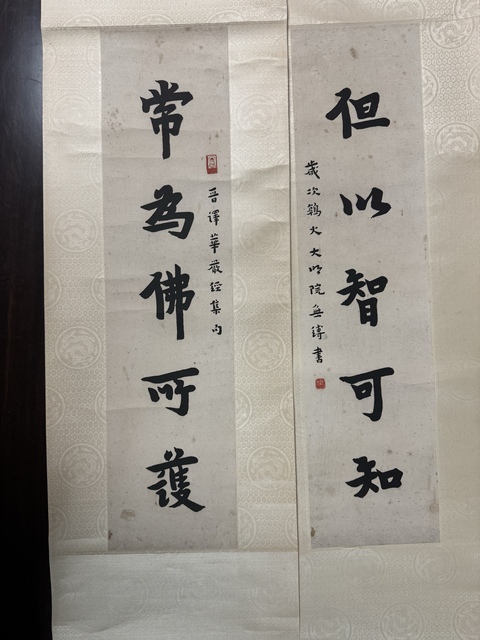 但以智可知
歲次鶉火大明院無縛書
晉譯華嚴經集句
常為佛所護